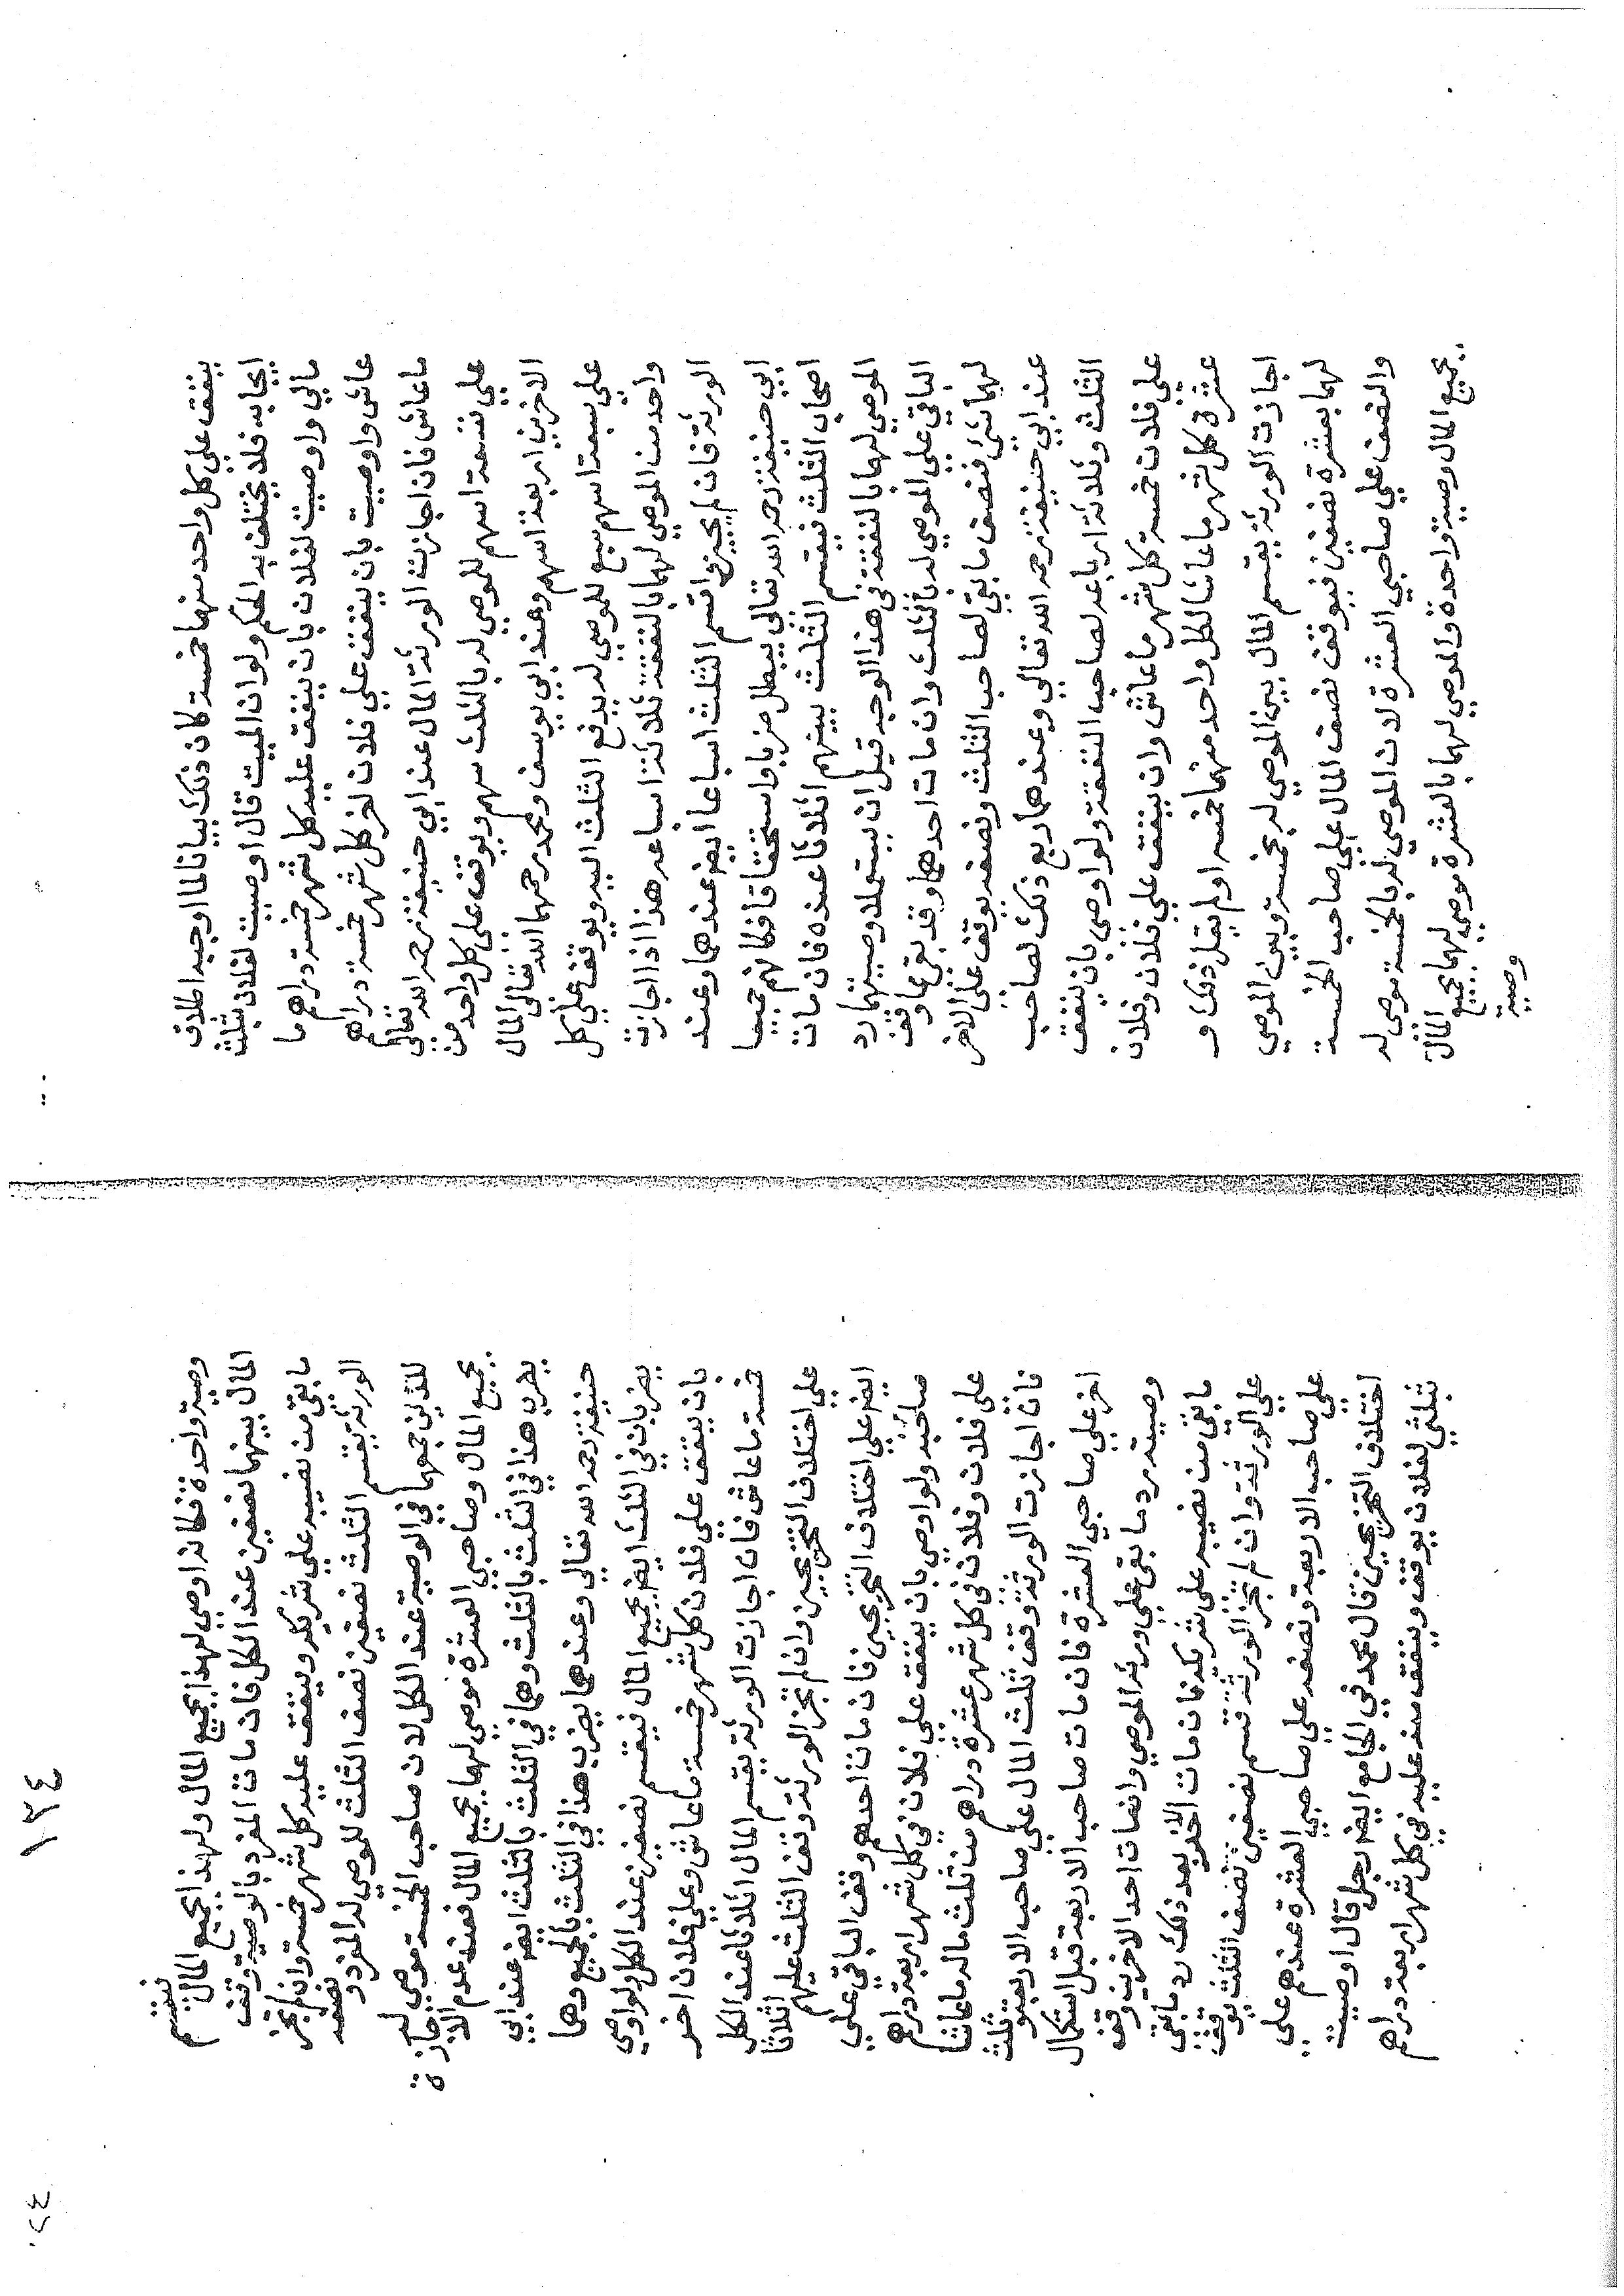 ينفق علي كل واحد منهما خمسة كان ذلك بيانا لما اوجبه اطلاق
ايجابه فلا يختلف به الحكم ولو ان الميت قال اوصيت لفلان بثلث
مالي واوصيت لفلان بان ينفق عليه كل شهر خمسة دراهم ما
عاش واوصيت بان ينفق علي فلان اخر كل شهر خمسة دراهم
ما عاش فان اجازت الورثة المال عند ابي حنيفة رحمه الله تعالى
علي تسعة اسهم للموصي له بالثلث سهم ويوقف على كل واحد من
الاخرين اربعة اسهم وعند ابي يوسف ومحمد رحمهما الله تعالى المال
علي سبعة اسهم سبع للموصي له يدفع الثلث اليه ويوقف علي كل
واحد من الموصي لهما بالنفقة ثلاثة اسباعه هذا اذا اجازت
الورثة فان لم يجيزوا قسم الثلث اسباعا ايضا عندهما وعند
ابي حنيفة رحمه الله تعالى يبطل ضربا واستحقاقا فكانهم جميعا
اصحاب الثلث فيقسم الثلث بينهم اثلاثا عنده فان مات
الموصي لهما بالنفقة في هذا الوجه قبل ان يستكملا وصيتهما رد
الباقي علي الموصي له بالثلث وان مات احدهما وقد بقي مما وقف
لهما شئ فنصف ما بقي لصاحب الثلث ونصفه يوقف على الاخر
عند ابي حنيفة رحمه الله تعالي وعندهما ربع ذلك لصاحب
الثلث وثلاثة ارباعه لصاحب النفقة ولو اوصي بان ينفق
علي فلان خمسة كل شهر ما عاش وان ينفق علي فلان وفلان
عشرة كل شهر ما عاشا لكل واحد منهما خمسة او لم يقل ذلك و
اجازت الورثة يقسم المال بين الموصي له بخمسة وبين الموصي
لهما بعشرة نصفين فيوقف نصف المال علي صاحب الخمسة
والنصف علي صاحبي العشرة لان الموصي له بالخمسة موصى له
بجميع المال وصية واحدة والموصي لهما بالعشرة موصي لهما بجميع المال
وصية
١٣٤
وصية واحدة فكانه اوصي لهذا بجميع المال ولهذا بجميع المال فيقسم
المال بينهما نصفين عند الكل فان مات المفرد بالوصية وقف
ما بقي من نصيبه علي شريكه وينفق عليه كل شهر خمسة وان لم تجز
الورثة يقسم الثلث نصفين نصف الثلث للموصي له المفرد و نصفه
للذين جمعهما في الوصية عند الكل لان صاحب الخمسة موصي له
بجميع المال وصاحبي العشرة موصي لهما بجميع المال فعند عدم الاجازة
يضرب هذا في الثلث بالثلث وهما في الثلث بالثلث ايضا عند ابي
حنيفة رحمه الله تعالي وعندهما يضرب هذا في الثلث بالجميع وهما
يضربان في الثلث ايضا بجميع المال فيقسم نصفين عند الكل ولو اوصي
بان ينفق علي فلان كل شهر خمسة ما عاش وعلي فلان اخر
خمسة ما عاش فان اجازت الورثة يقسم المال اثلاثا عند الكل
علي اختلاف التخريجين وان لم تجز الورثة وقف الثلث عليهم اثلاثا
ايضا علي اختلاف التخريجين فان مات احدهم وقف الباقي علي
صاحبيه ولو اوصي بان ينفق علي فلان في كل شهر اربعة دراهم
على فلان وفلان في كل شهر عشرة دراهم من ثلث ماله ما عاشا
فان اجازت الورثة وقف ثلث المال علي صاحب الاربعة وثلث
اخر علي صاحبي العشرة فان مات صاحب الاربعة قبل استكمال
وصيته رد ما بقي علي ورثة الموصي وان مات احد الاخرين وقف
ما بقي من نصيبه على شريكه فان مات الاخر بعد ذلك رد ما بقي
علي الورثة وان لم تجز الورثة قسم نصفين نصف الثلث يوقف
علي صاحب الاربعة ونصفه علي صاحبي العشرة عندهم علي
اختلاف التخريجين قال محمد في الجامع ايضا رجل قال اوصيت
بثلثي لفلان يوقف وينفق منه عليه في كل شهر اربعة دراهم